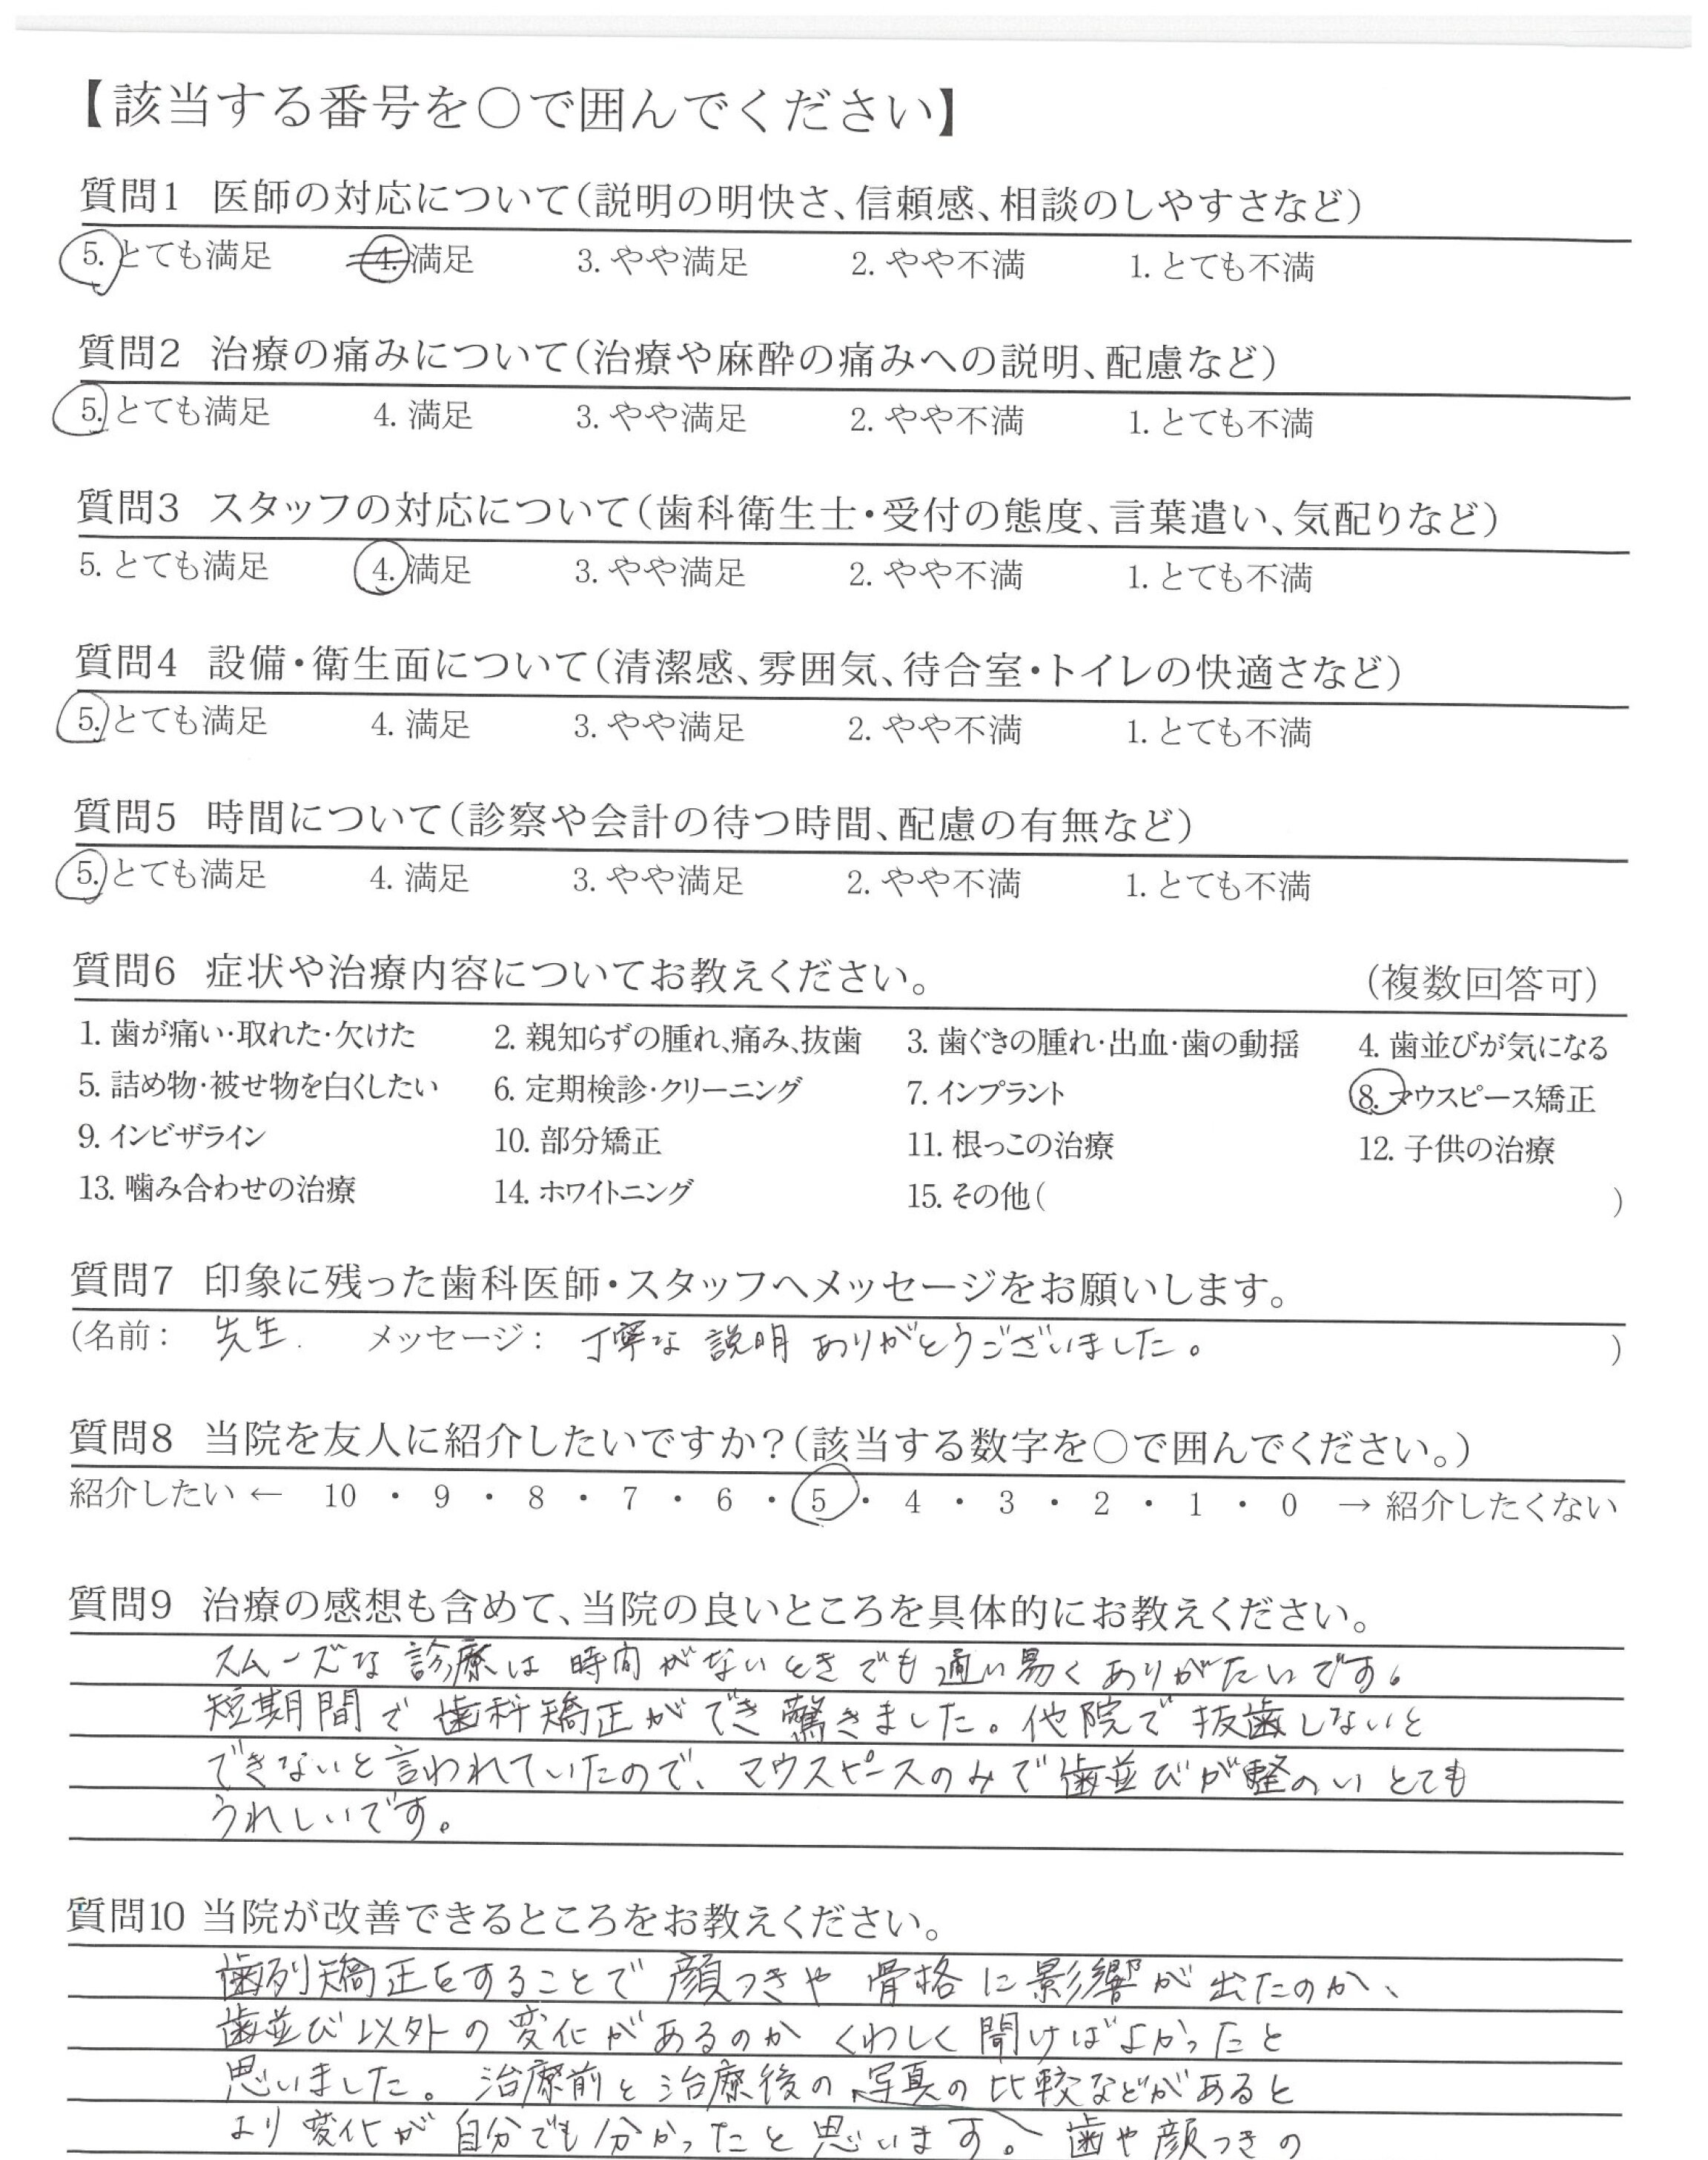 【該当する番号を○で囲んでください】
質問1 医師の対応について(説明の明快さ、信頼感、相談のしやすさなど)
5. とても満足 4. 満足 3. やや満足 2. やや不満 1. とても不満
質問2 治療の痛みについて(治療や麻酔の痛みへの説明、配慮など)
5. とても満足 4. 満足 3. やや満足 2. やや不満 1. とても不満
質問3 スタッフの対応について(歯科衛生士・受付の態度、言葉遣い、気配りなど)
5. とても満足 4. 満足 3. やや満足 2. やや不満 1. とても不満
質問4 設備・衛生面について(清潔感、雰囲気、待合室・トイレの快適さなど)
5. とても満足 4. 満足 3. やや満足 2. やや不満 1. とても不満
質問5 時間について(診察や会計の待つ時間、配慮の有無など)
5. とても満足 4. 満足 3. やや満足 2. やや不満 1. とても不満
質問6 症状や治療内容についてお教えください。 (複数回答可)
1. 歯が痛い・取れた・欠けた 2. 親知らずの腫れ、痛み、抜歯 3. 歯ぐきの腫れ・出血・歯の動揺 4. 歯並びが気になる
5. 詰め物・被せ物を白くしたい 6. 定期検診・クリーニング 7. インプラント 8. マウスピース矯正
9. インビザライン 10. 部分矯正 11. 根っこの治療 12. 子供の治療
13. 噛み合わせの治療 14. ホワイトニング 15. その他( )
質問7 印象に残った歯科医師・スタッフへメッセージをお願いします。
(名前: 先生. メッセージ: 丁寧な説明ありがとうございました。 )
質問8 当院を友人に紹介したいですか?(該当する数字を○で囲んでください。)
紹介したい ← 10 ・ 9 ・ 8 ・ 7 ・ 6 ・ 5 ・ 4 ・ 3 ・ 2 ・ 1 ・ 0 → 紹介したくない
質問9 治療の感想も含めて、当院の良いところを具体的にお教えください。
スムーズな診療は時間がないときでも通い易くありがたいです。
短期間で歯科矯正ができ驚きました。他院で抜歯しないと
できないと言われていたので、マウスピースのみで歯並びが整のいとても
うれしいです。
質問10 当院が改善できるところをお教えください。
歯列矯正をすることで顔つきや骨格に影響が出たのか、
歯並び以外の変化があるのかくわしく聞けばよかったと
思いました。治療前と治療後の写真の比較などがあると
より変化が自分でも分かったと思います。歯や顔つきの